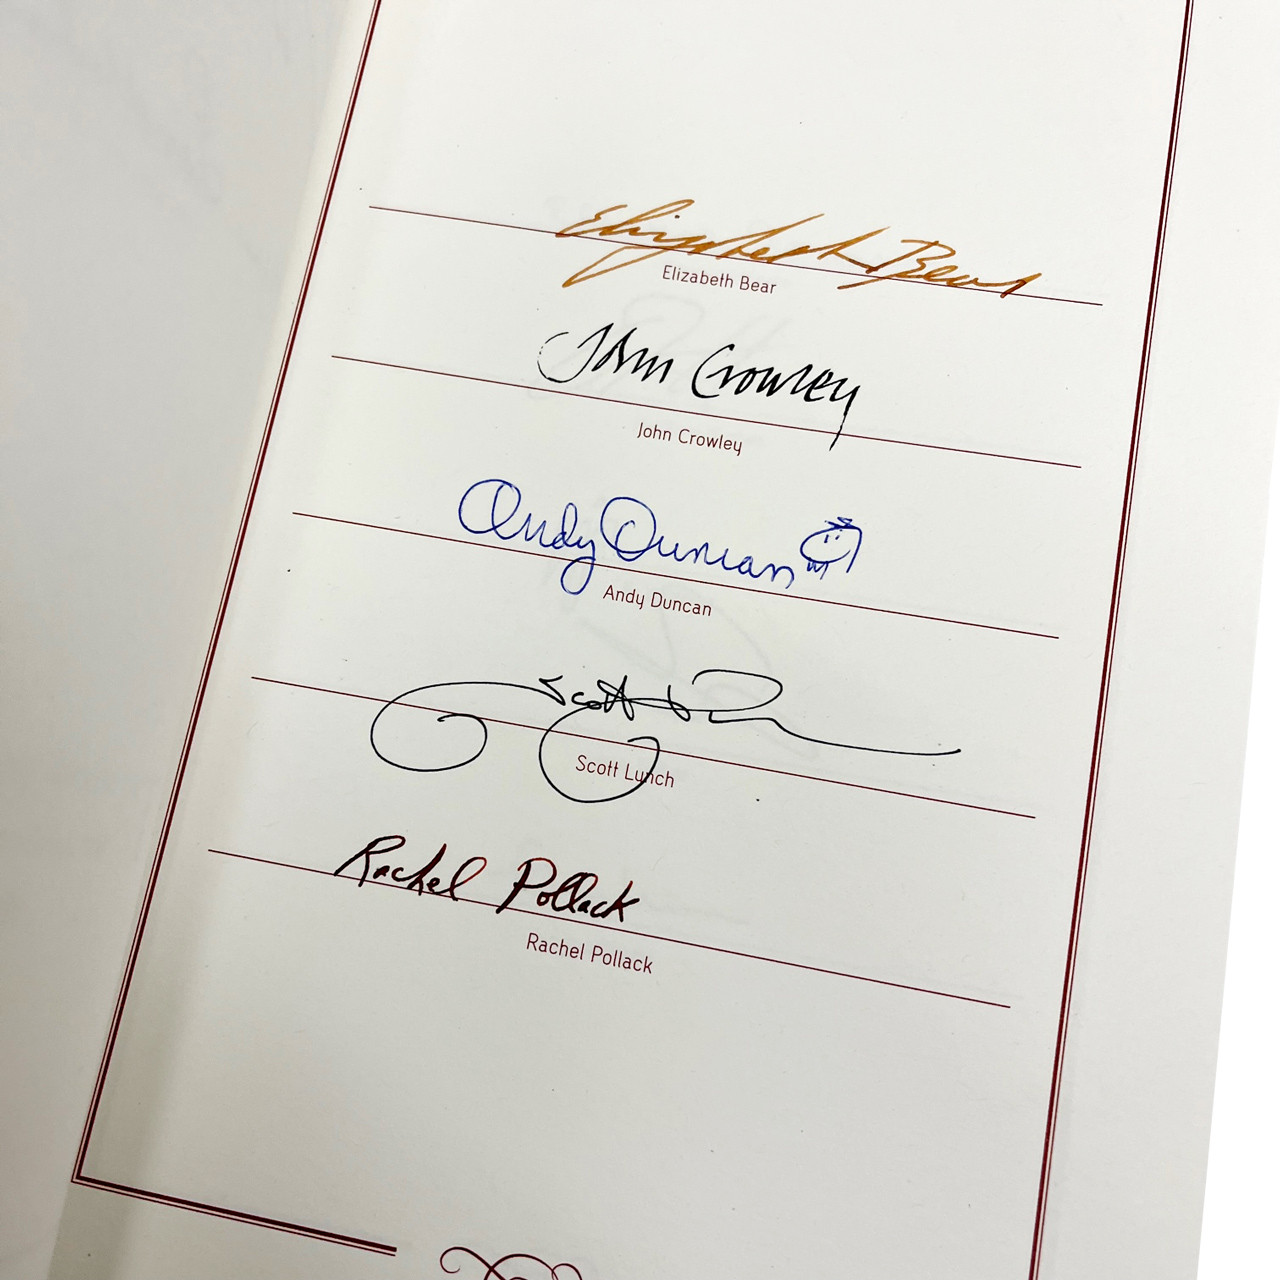 Elizabeth Bear
Elizabeth Bear
John Crowley
John Crowley
Andy Duncan
Andy Duncan
Scott
Scott Lynch
Rachel Pollack
Rachel Pollack